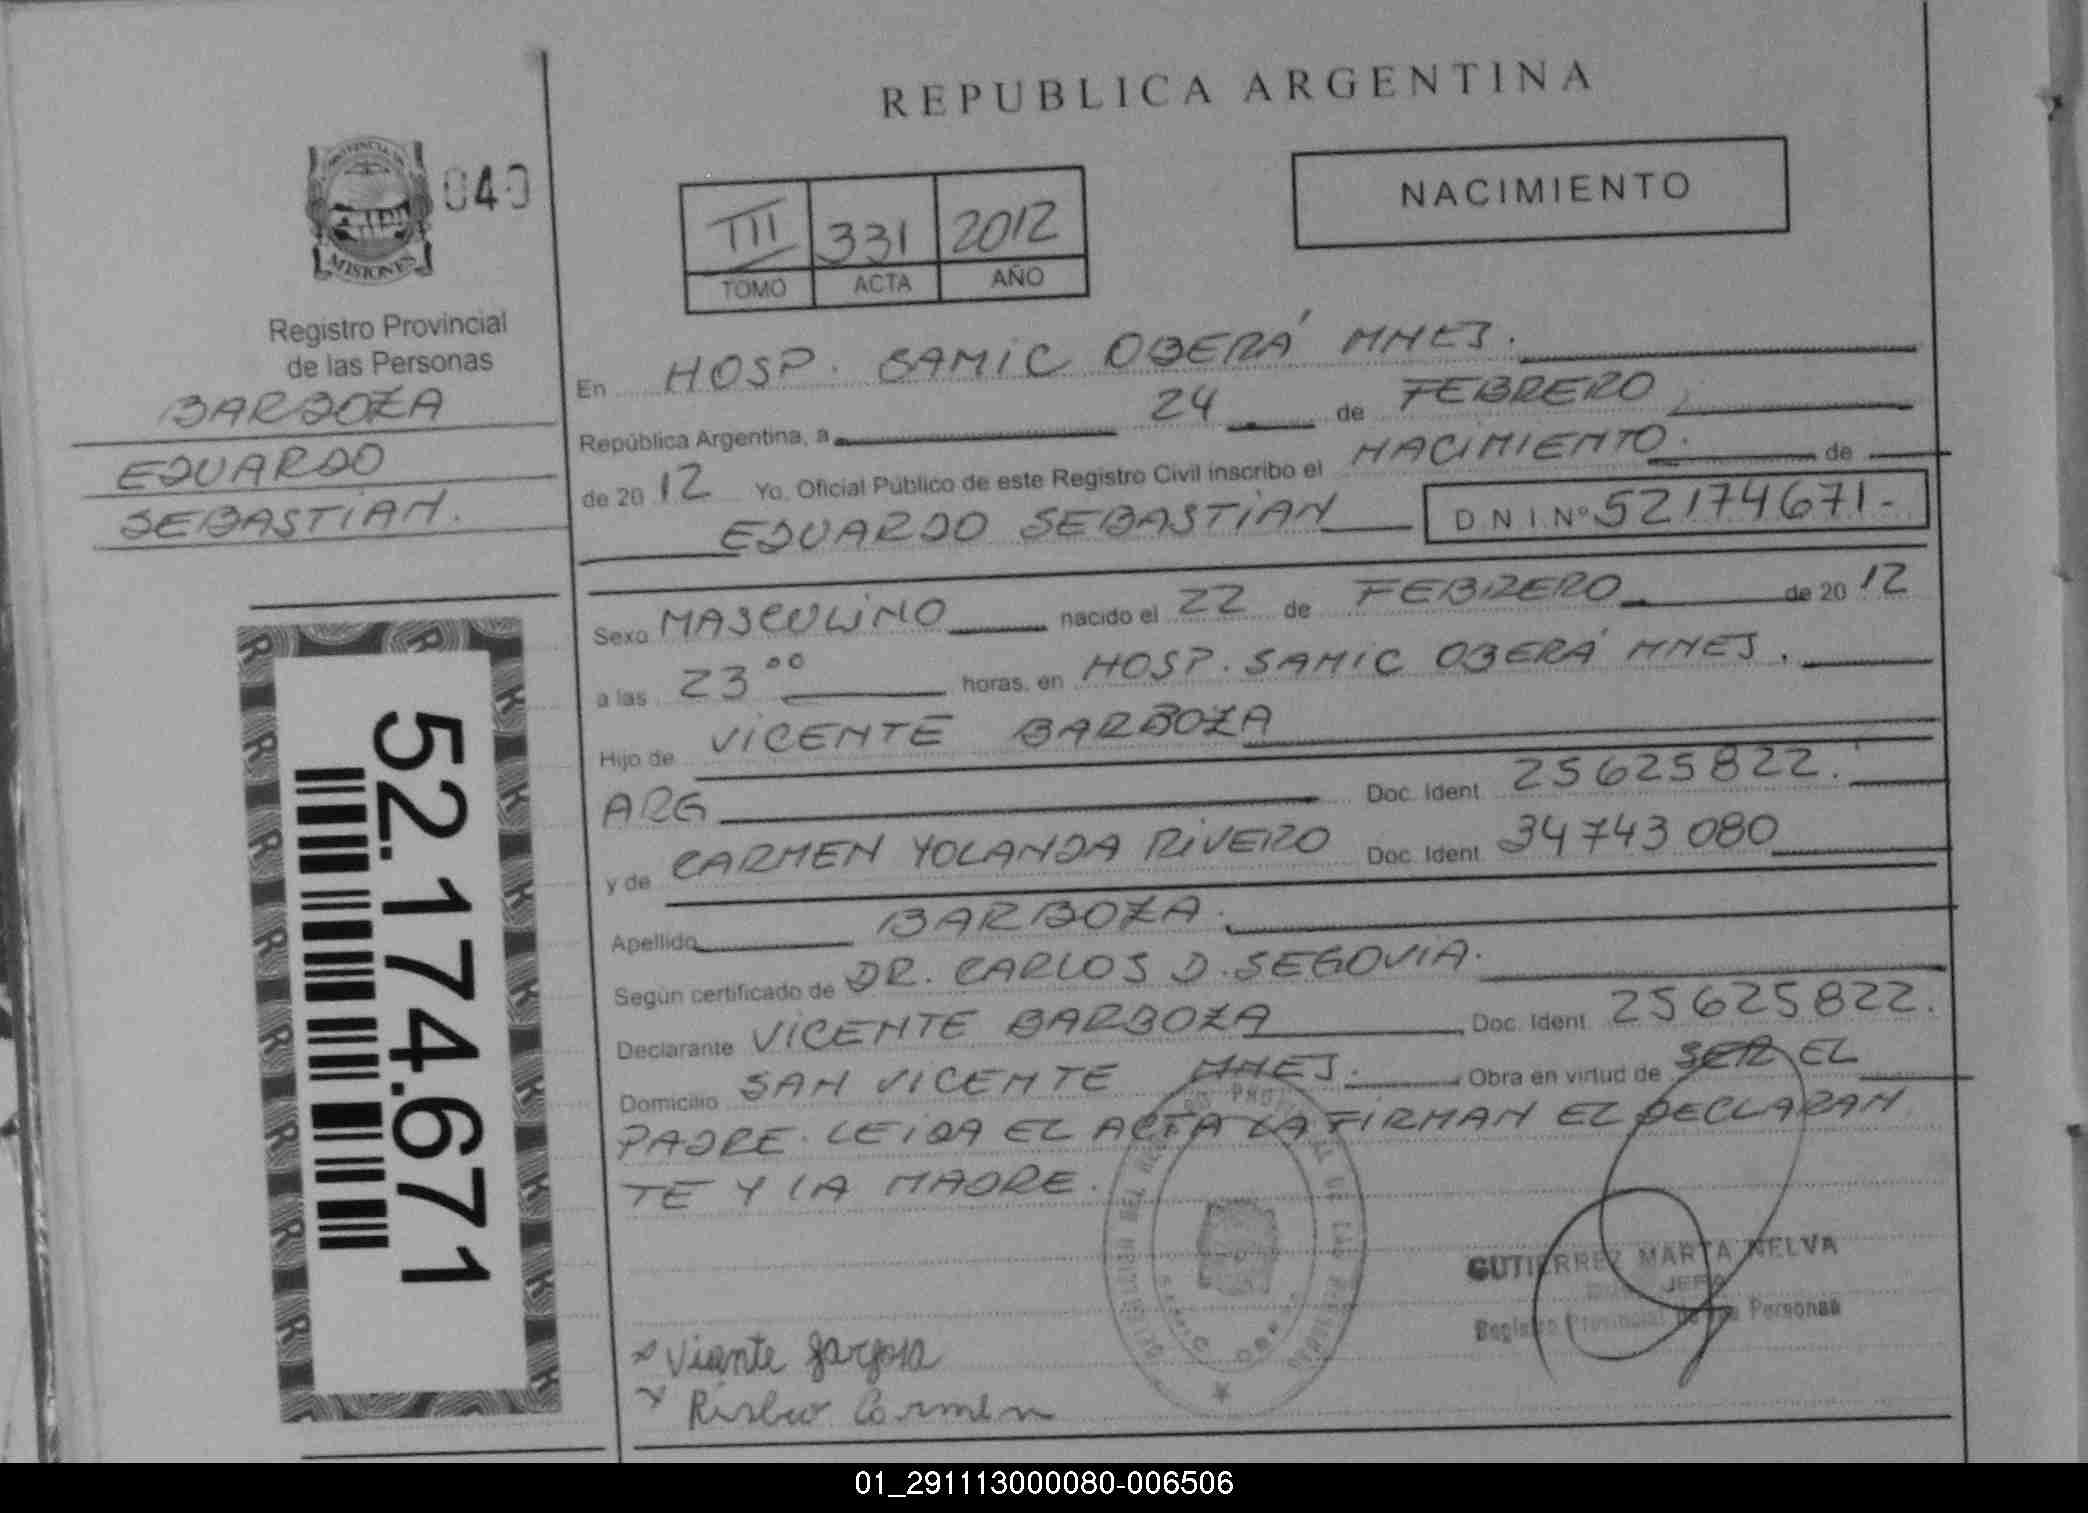 REPUBLICA ARGENTINA
NACIMIENTO
PROVINCIA DE
MISIONES
040
III 331 2012
TOMO ACTA AÑO
Registro Provincial
de las Personas
BARBOZA
EDUARDO
SEBASTIAN.
52.174.671
En HOSP. SAMIC OBERÁ MNES.
República Argentina, a 24 de FEBRERO
de 20 12 Yo, Oficial Público de este Registro Civil inscribo el NACIMIENTO. de
EDUARDO SEBASTIAN D N I Nº 52174671-
Sexo MASCULINO nacido el 22 de FEBRERO de 20 12
a las 23 00 horas, en HOSP. SAMIC OBERÁ MNES.
Hijo de VICENTE BARBOZA
ARG Doc. Ident. 25625822.
y de CARMEN YOLANDA RIVERO Doc. Ident. 34743080
Apellido BARBOZA.
Según certificado de DR. CARLOS D. SEGOVIA.
Declarante VICENTE BARBOZA Doc. Ident. 25625822.
Domicilio SAN VICENTE MNES. Obra en virtud de SER EL
PADRE. LEIDA EL ACTA LA FIRMAN EL DECLARAN
TE Y LA MADRE.
GUTIERREZ MARTA NELVA
JEFA
Registro Provincial de las Personas
Carmen
01_291113000080-006506